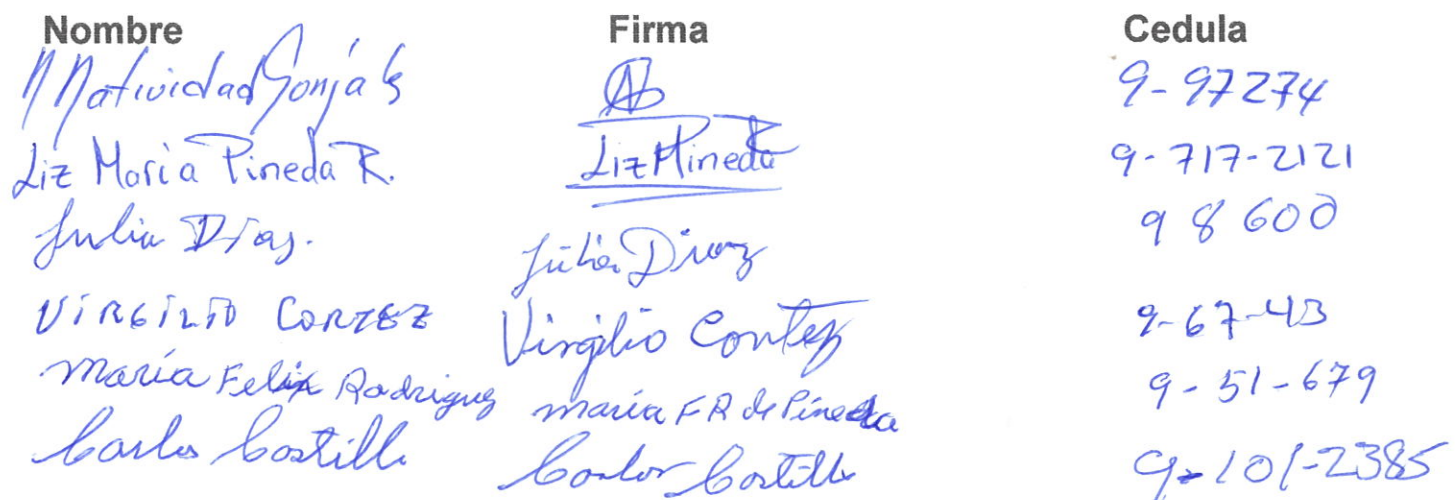 Nombre Firma Cedula
Natividad Gonja 9-97274
Liz Maria Pineda R. Liz Pineda R 9-717-2121
Julia Dias. Julia Diaz 9 8 600
VIRGILIO CORTEZ Virgilio Cortez 9-67-43
María Felix Rodriguez maría F R de Pineda 9-51-679
Carlos Castillo Carlos Castillo 9-101-2385